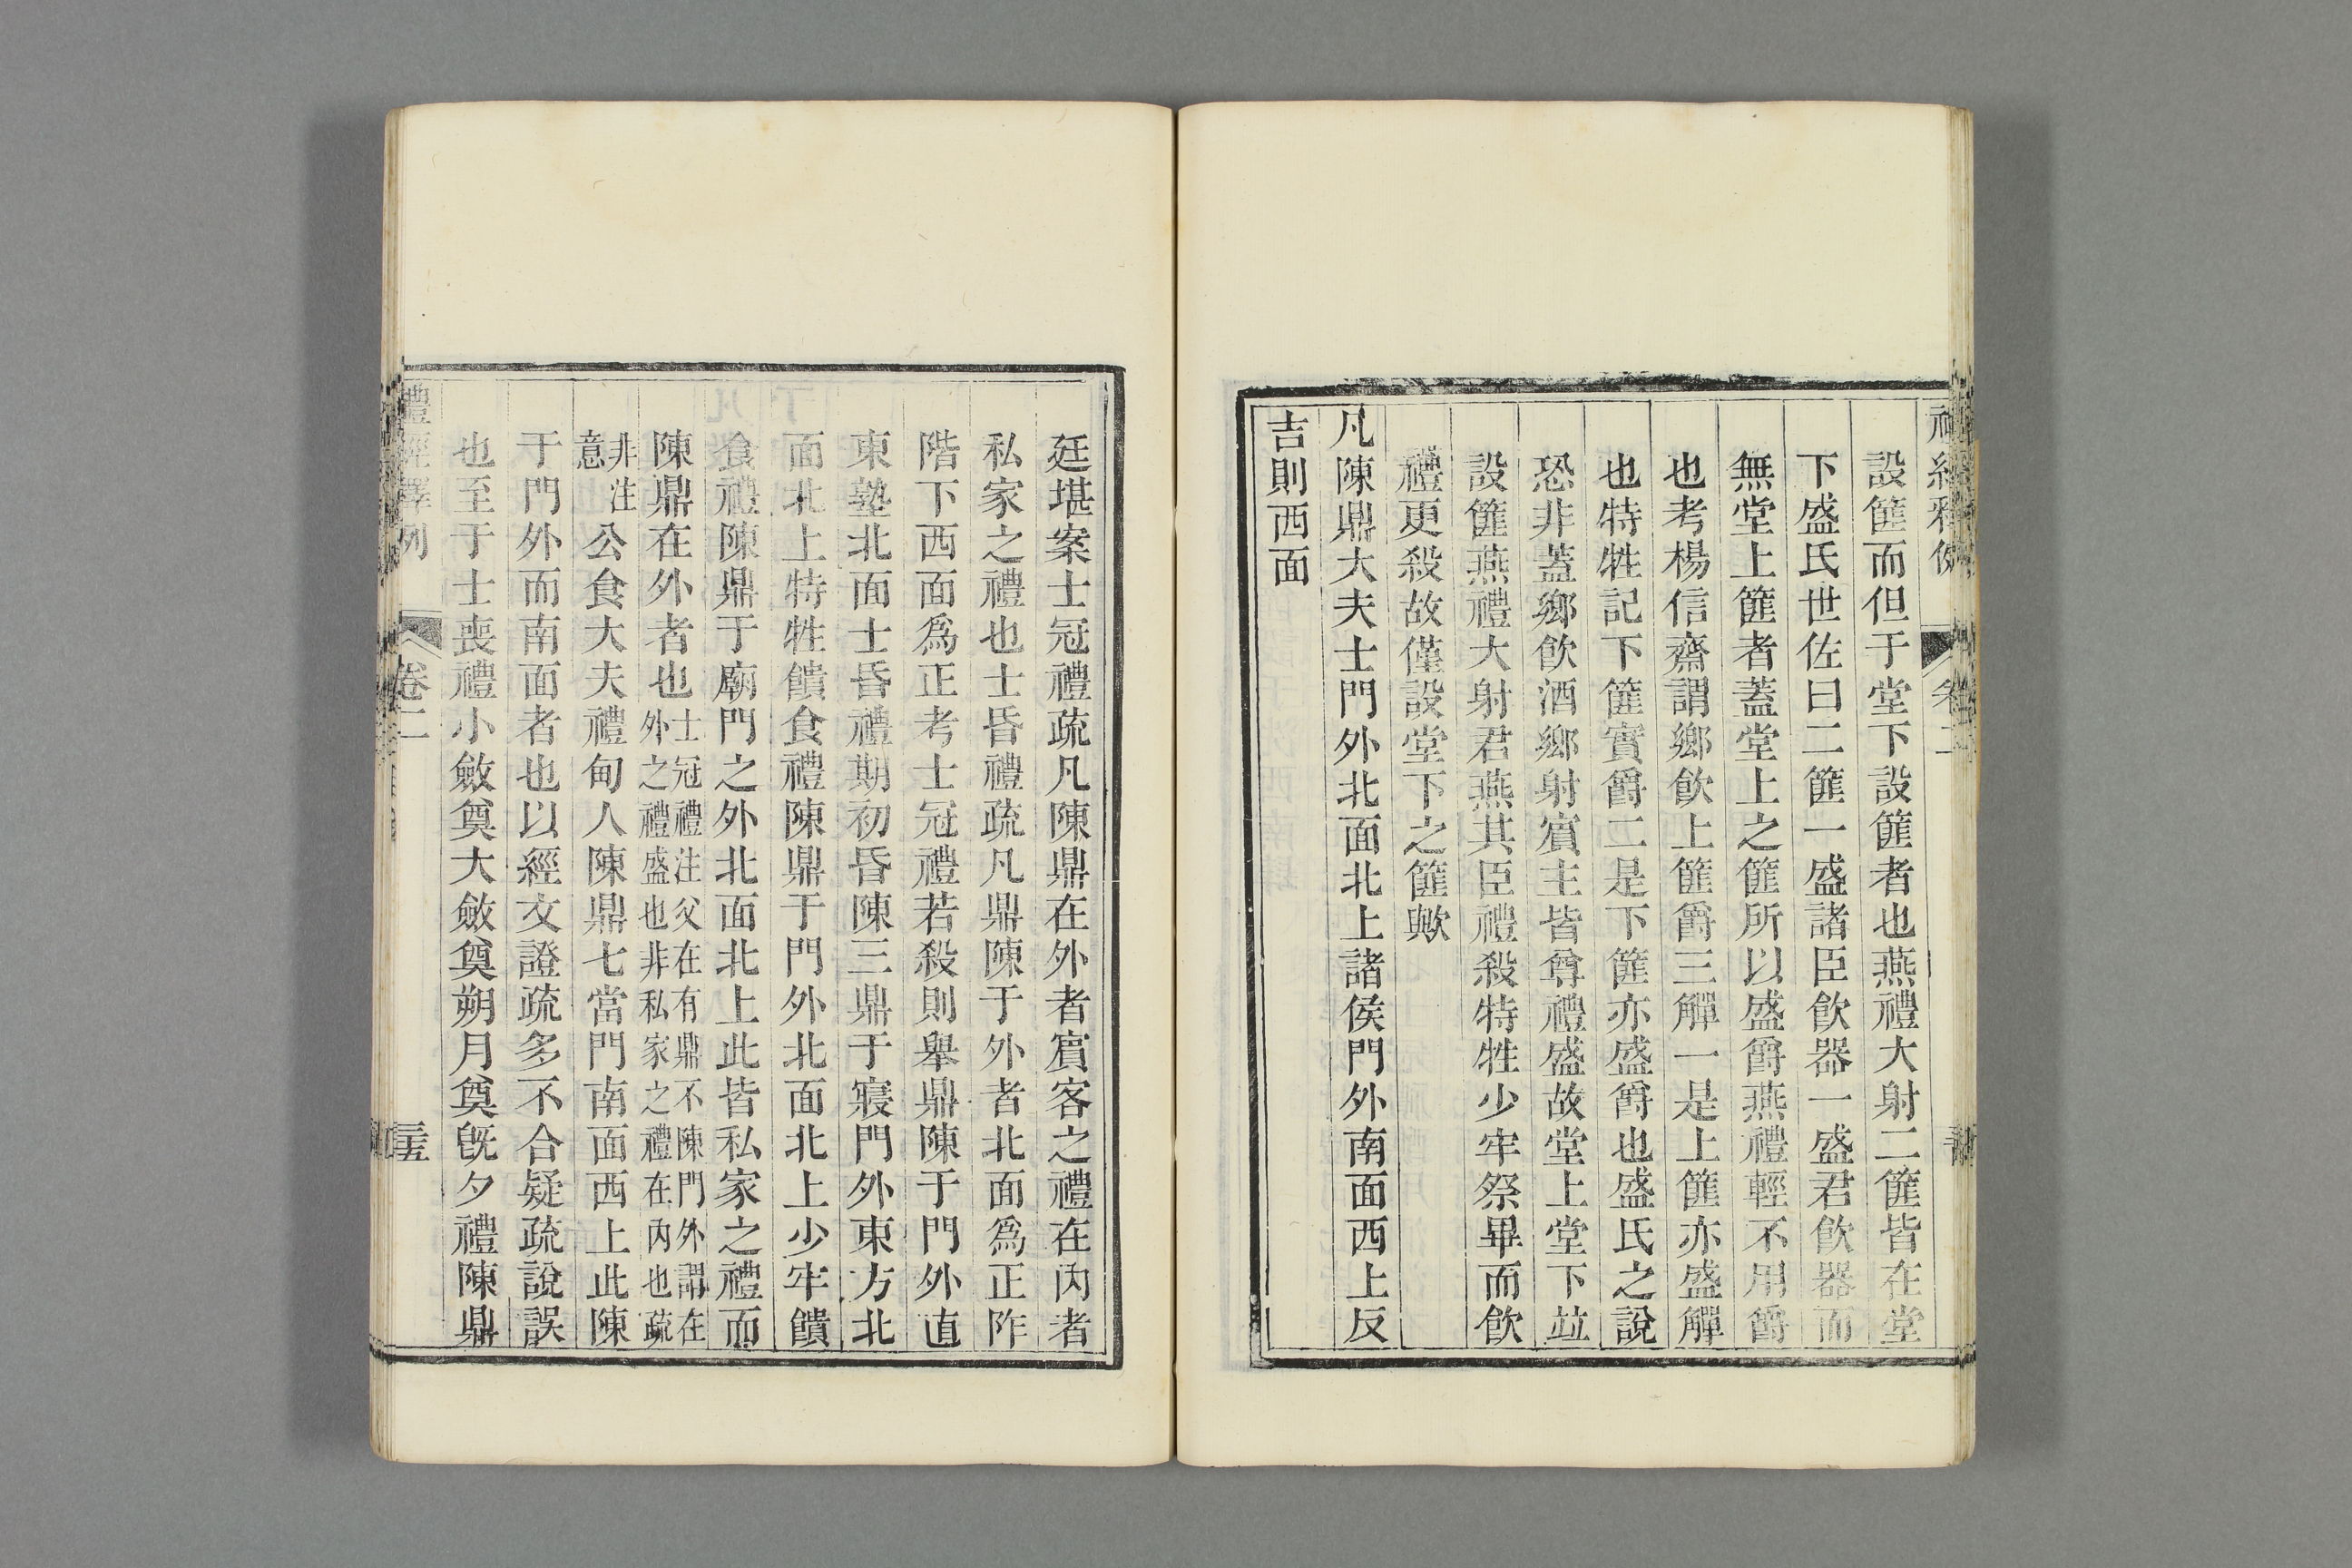 設篚而但于堂下設篚者也燕禮大射二篚皆在堂
下盛氏世佐曰二篚一盛諸臣飮器一盛君飮器而
無堂上篚者蓋堂上之篚所以盛爵燕禮輕不用爵
也考楊信齋謂鄉飮上篚爵三觶一是上篚亦盛觶
也特牲記下篚實爵二是下篚亦盛爵也盛氏之說
恐非蓋鄉飮酒鄉射賓主皆尊禮盛故堂上堂下竝
設篚燕禮大射君燕其臣禮殺特牲少牢祭畢而飮
禮更殺故僅設堂下之篚歟
凡陳鼎大夫士門外北面北上諸侯門外南面西上反
吉則西面
廷堪案士冠禮疏凡陳鼎在外者賓客之禮在內者
私家之禮也士昏禮疏凡鼎陳于外者北面爲正阼
階下西面爲正考士冠禮若殺則舉鼎陳于門外直
東塾北面士昏禮期初昏陳三鼎于寢門外東方北
面北上特牲饋食禮陳鼎于門外北面北上少牢饋
食禮陳鼎于廟門之外北面北上此皆私家之禮而
陳鼎在外者也士冠禮注父在有鼎不陳門外謂在外之禮盛也非私家之禮在內也疏
非注意公食大夫禮甸人陳鼎七當門南面西上此陳
于門外而南面者也以經文證疏多不合疑疏說誤
也至于士喪禮小斂奠大斂奠朔月奠旣夕禮陳鼎
禮經釋例 卷二